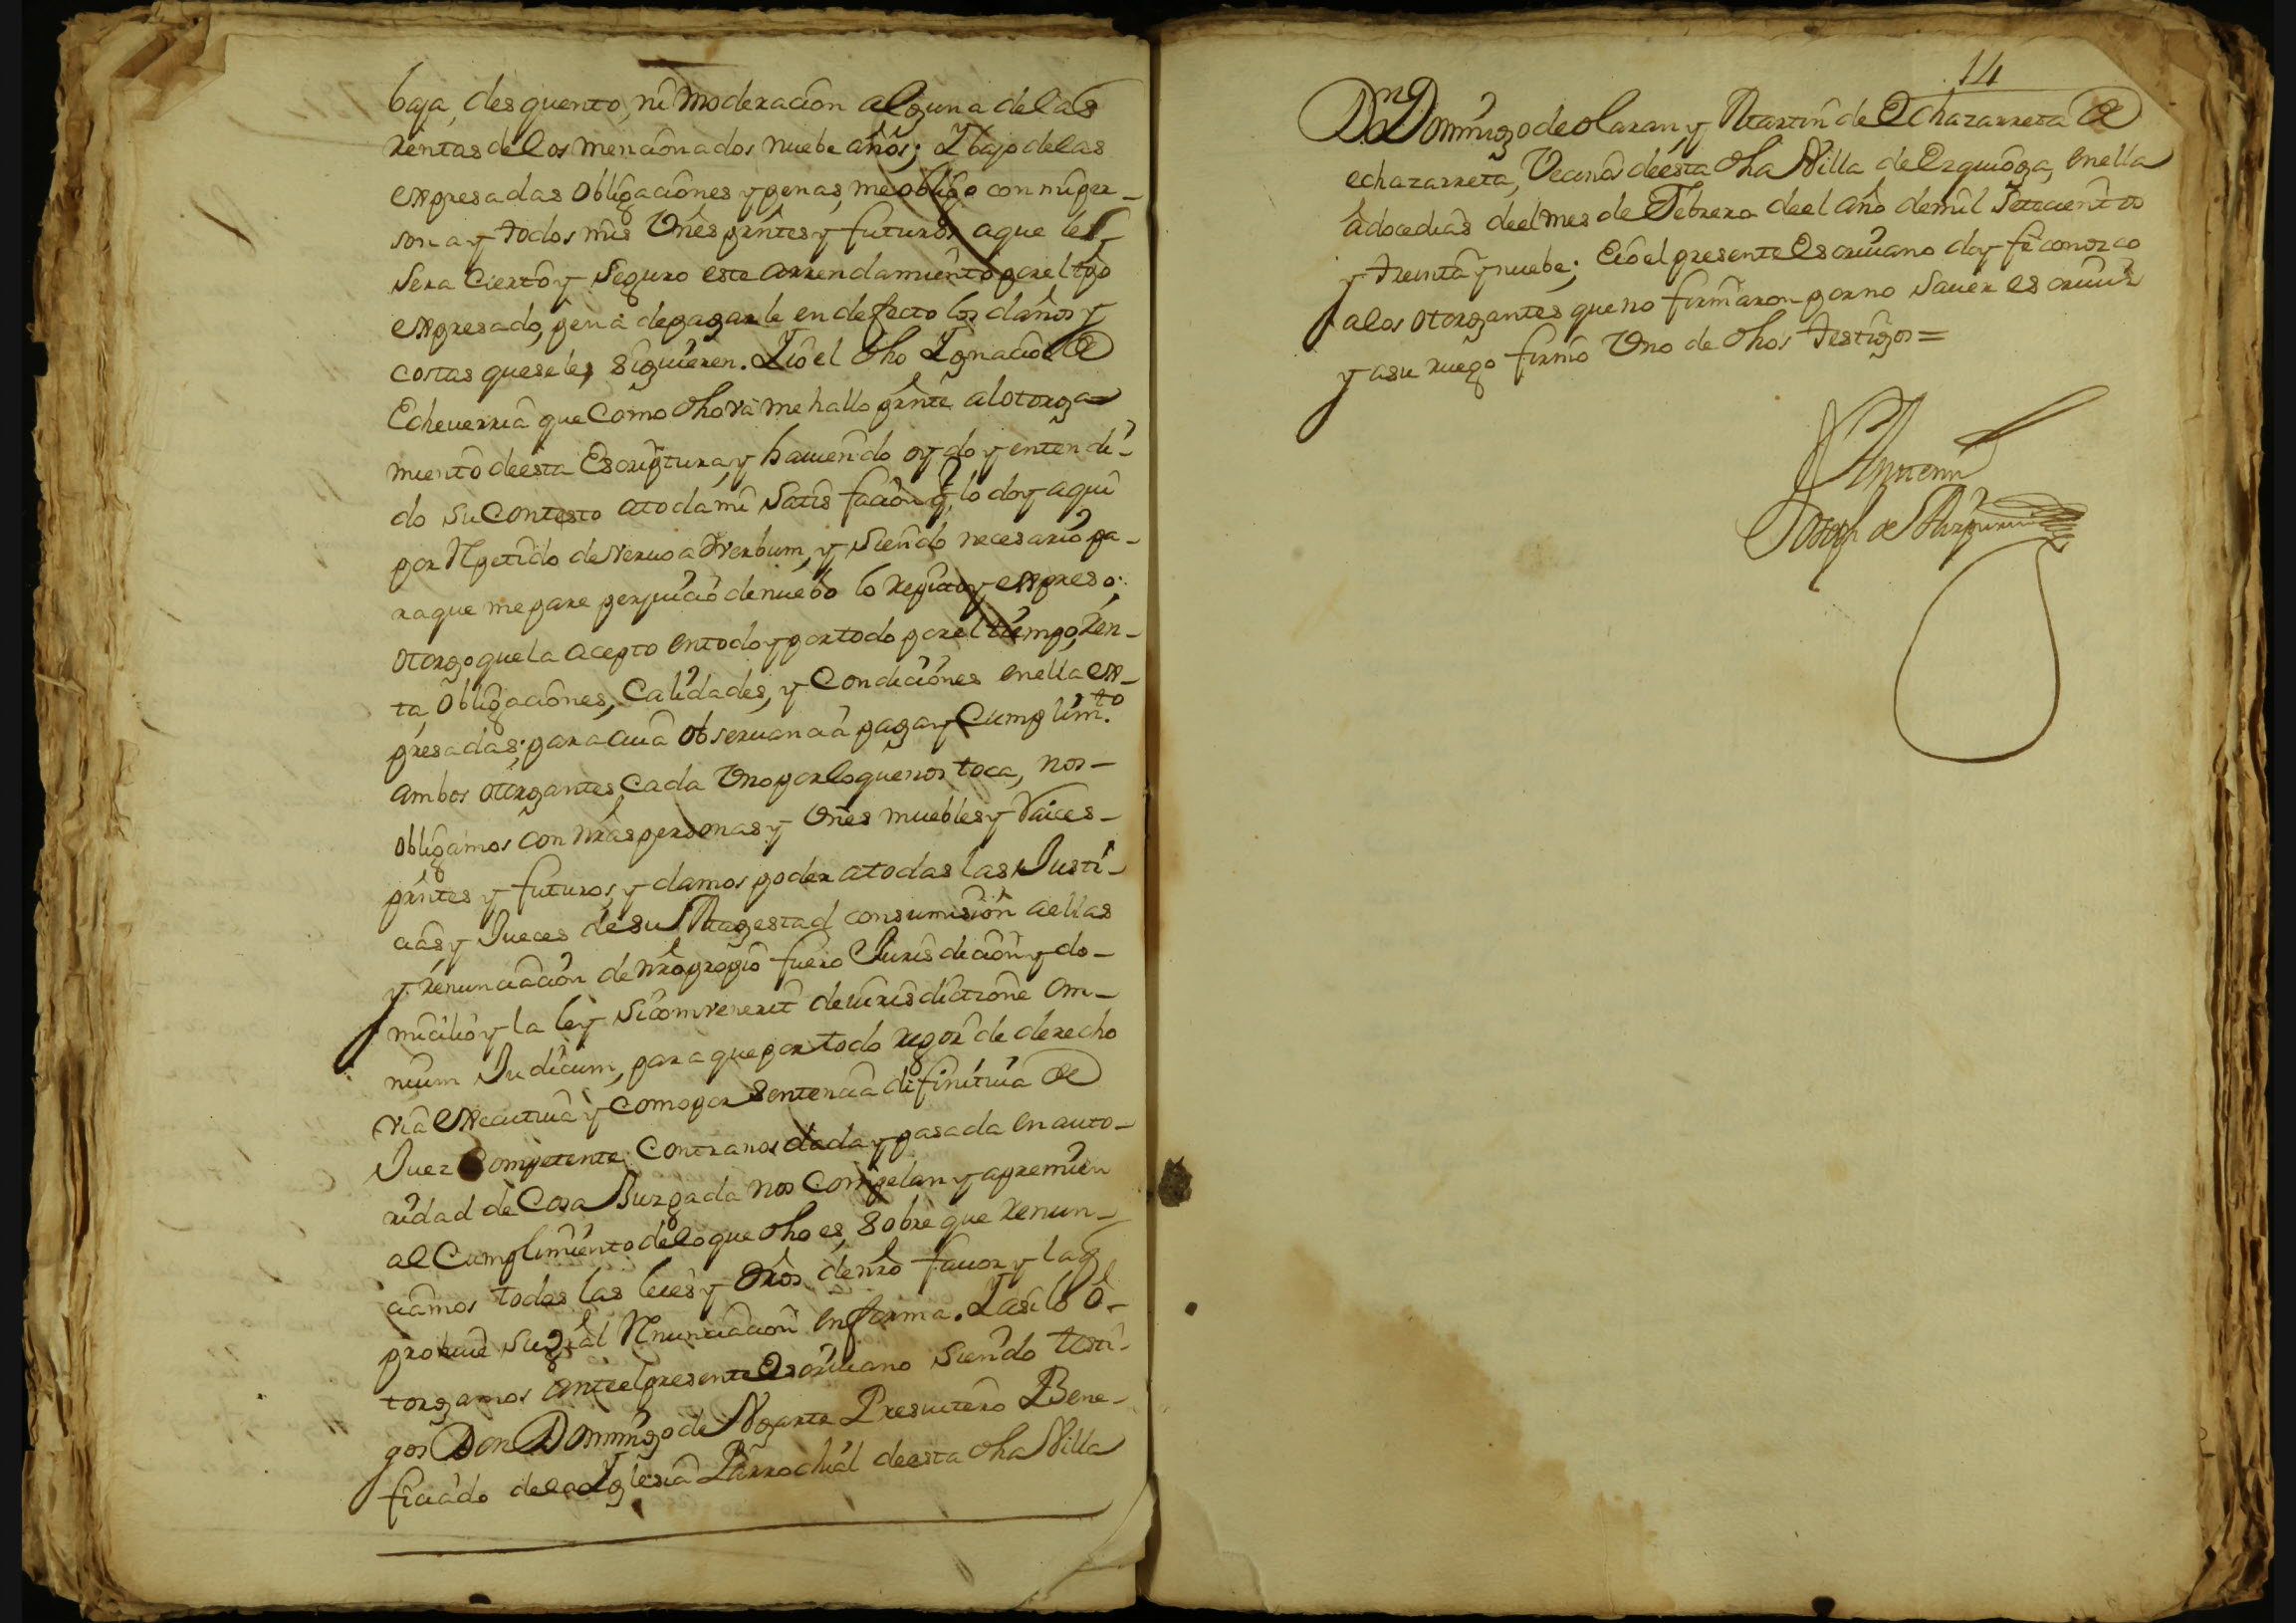 baja, desquento, ni moderacion alguna de las
rentas de los mencionados nuebe años; Y bajo de las
expresadas obligaciones y penas, me obligo con mi per-
sona y todos mis vnes prntes y futuros a que les
sera cierto y seguro este arrendamiento por el tpo
expresado, pena de pagarle en defecto los daños y
costas que se les siguieren. Yio el dho Ygnacio de
Echeuerria que como dho va me hallo prnte al otorga=
miento de esta Escriptura, y hauiendo oydo y entendi-
do su contesto a toda mi satisfacion q̃ lo doy aqui
por Rpetido de veruo ad verbum, y siendo necesario pa-
ra que me pare perjuicio de nuebo lo repito y expreso;
otorgo que la acepto en todo y por todo por el tiempo, Ren-
ta, obligaciones, Calidades, y Condiciones en ella ex-
presadas; para cuia obseruancia paga y Cumplimto
ambos otorgantes cada vno por lo que nos toca, nos-
obligamos con nras personas y vnes muebles y raices-
prntes y futuros, y damos poder a todas las Justi-
cias y Jueces de su Magestad con sumision a ellas
y renunciacion de nro propio fuero Jurisdicion y do-
micilio y la ley si combenerit de iurisdictione om-
nium Judicum, para que por todo rigor de derecho
via executiua y como por sentencia difinitiua de
Juez Competente contra nos dada y pasada en auto-
ridad de Cosa Juzgada nos compelan y apremien
al Cumplimiento de lo que dho es, sobre que renun-
ciamos todas las leies y dros de nro fauor y la q̃
prohiue su gral Rnunciacion en forma. Y asi lo o-
torgamos ante el presente Escriuano siendo testi-
gos Don Domingo de Ugarte Presuitero Bene-
ficiado de la Yglesia Parrochial de esta dha Villa
14
Dn Domingo de Olaran y Martin de Echazarreta de
echazarreta, Vecinos de esta dha Villa de Ezquioga, en ella
a doce dias de el mes de Febrero de el año de mil setecientos
y treinta y nuebe; E io el presente Escriuano doy fe conozco
a los otorgantes que no firmaron por no sauer escriuir
y a su ruego firmo vno de dhos testigos=
Joseph de